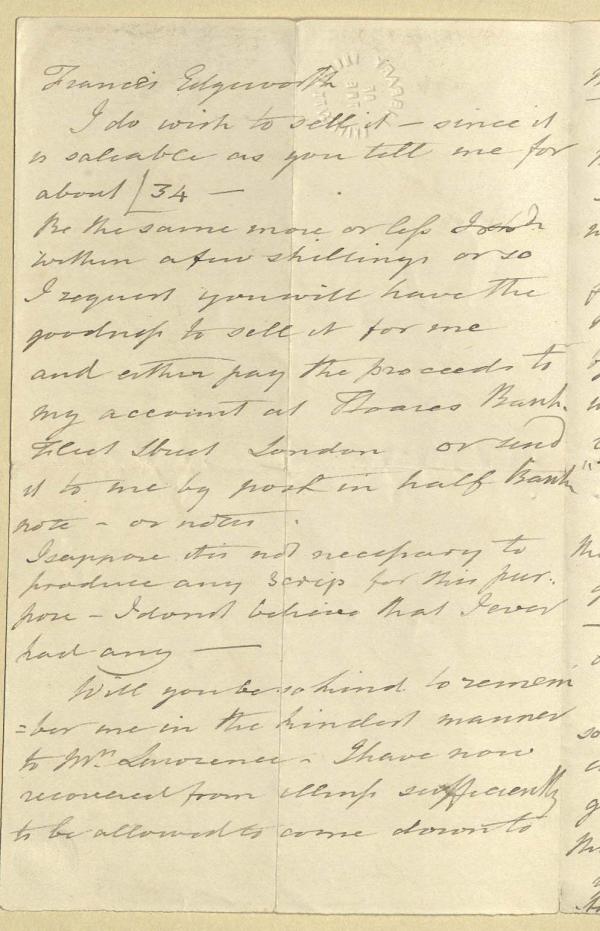 Francis Edgeworth
I do wish to sell it – since it
is saleable as you tell me for
about £34 –
Be the same more or less
within a few shillings or so
I request you will have the
goodness to sell it for me
and either pay the proceeds to
my account at Hoares Bank.
Fleet Street London or send
it to me by post in half Bank
note – or notes.
I suppose it is not necessary to
produce any scrip for this pur-
pose – I do not believe that I ever
had any —
Will you be so kind to remem
=ber me in the kindest manner
to Mrs Lawrence – I have now
recovered from illness sufficiently
to be allowed to come down to